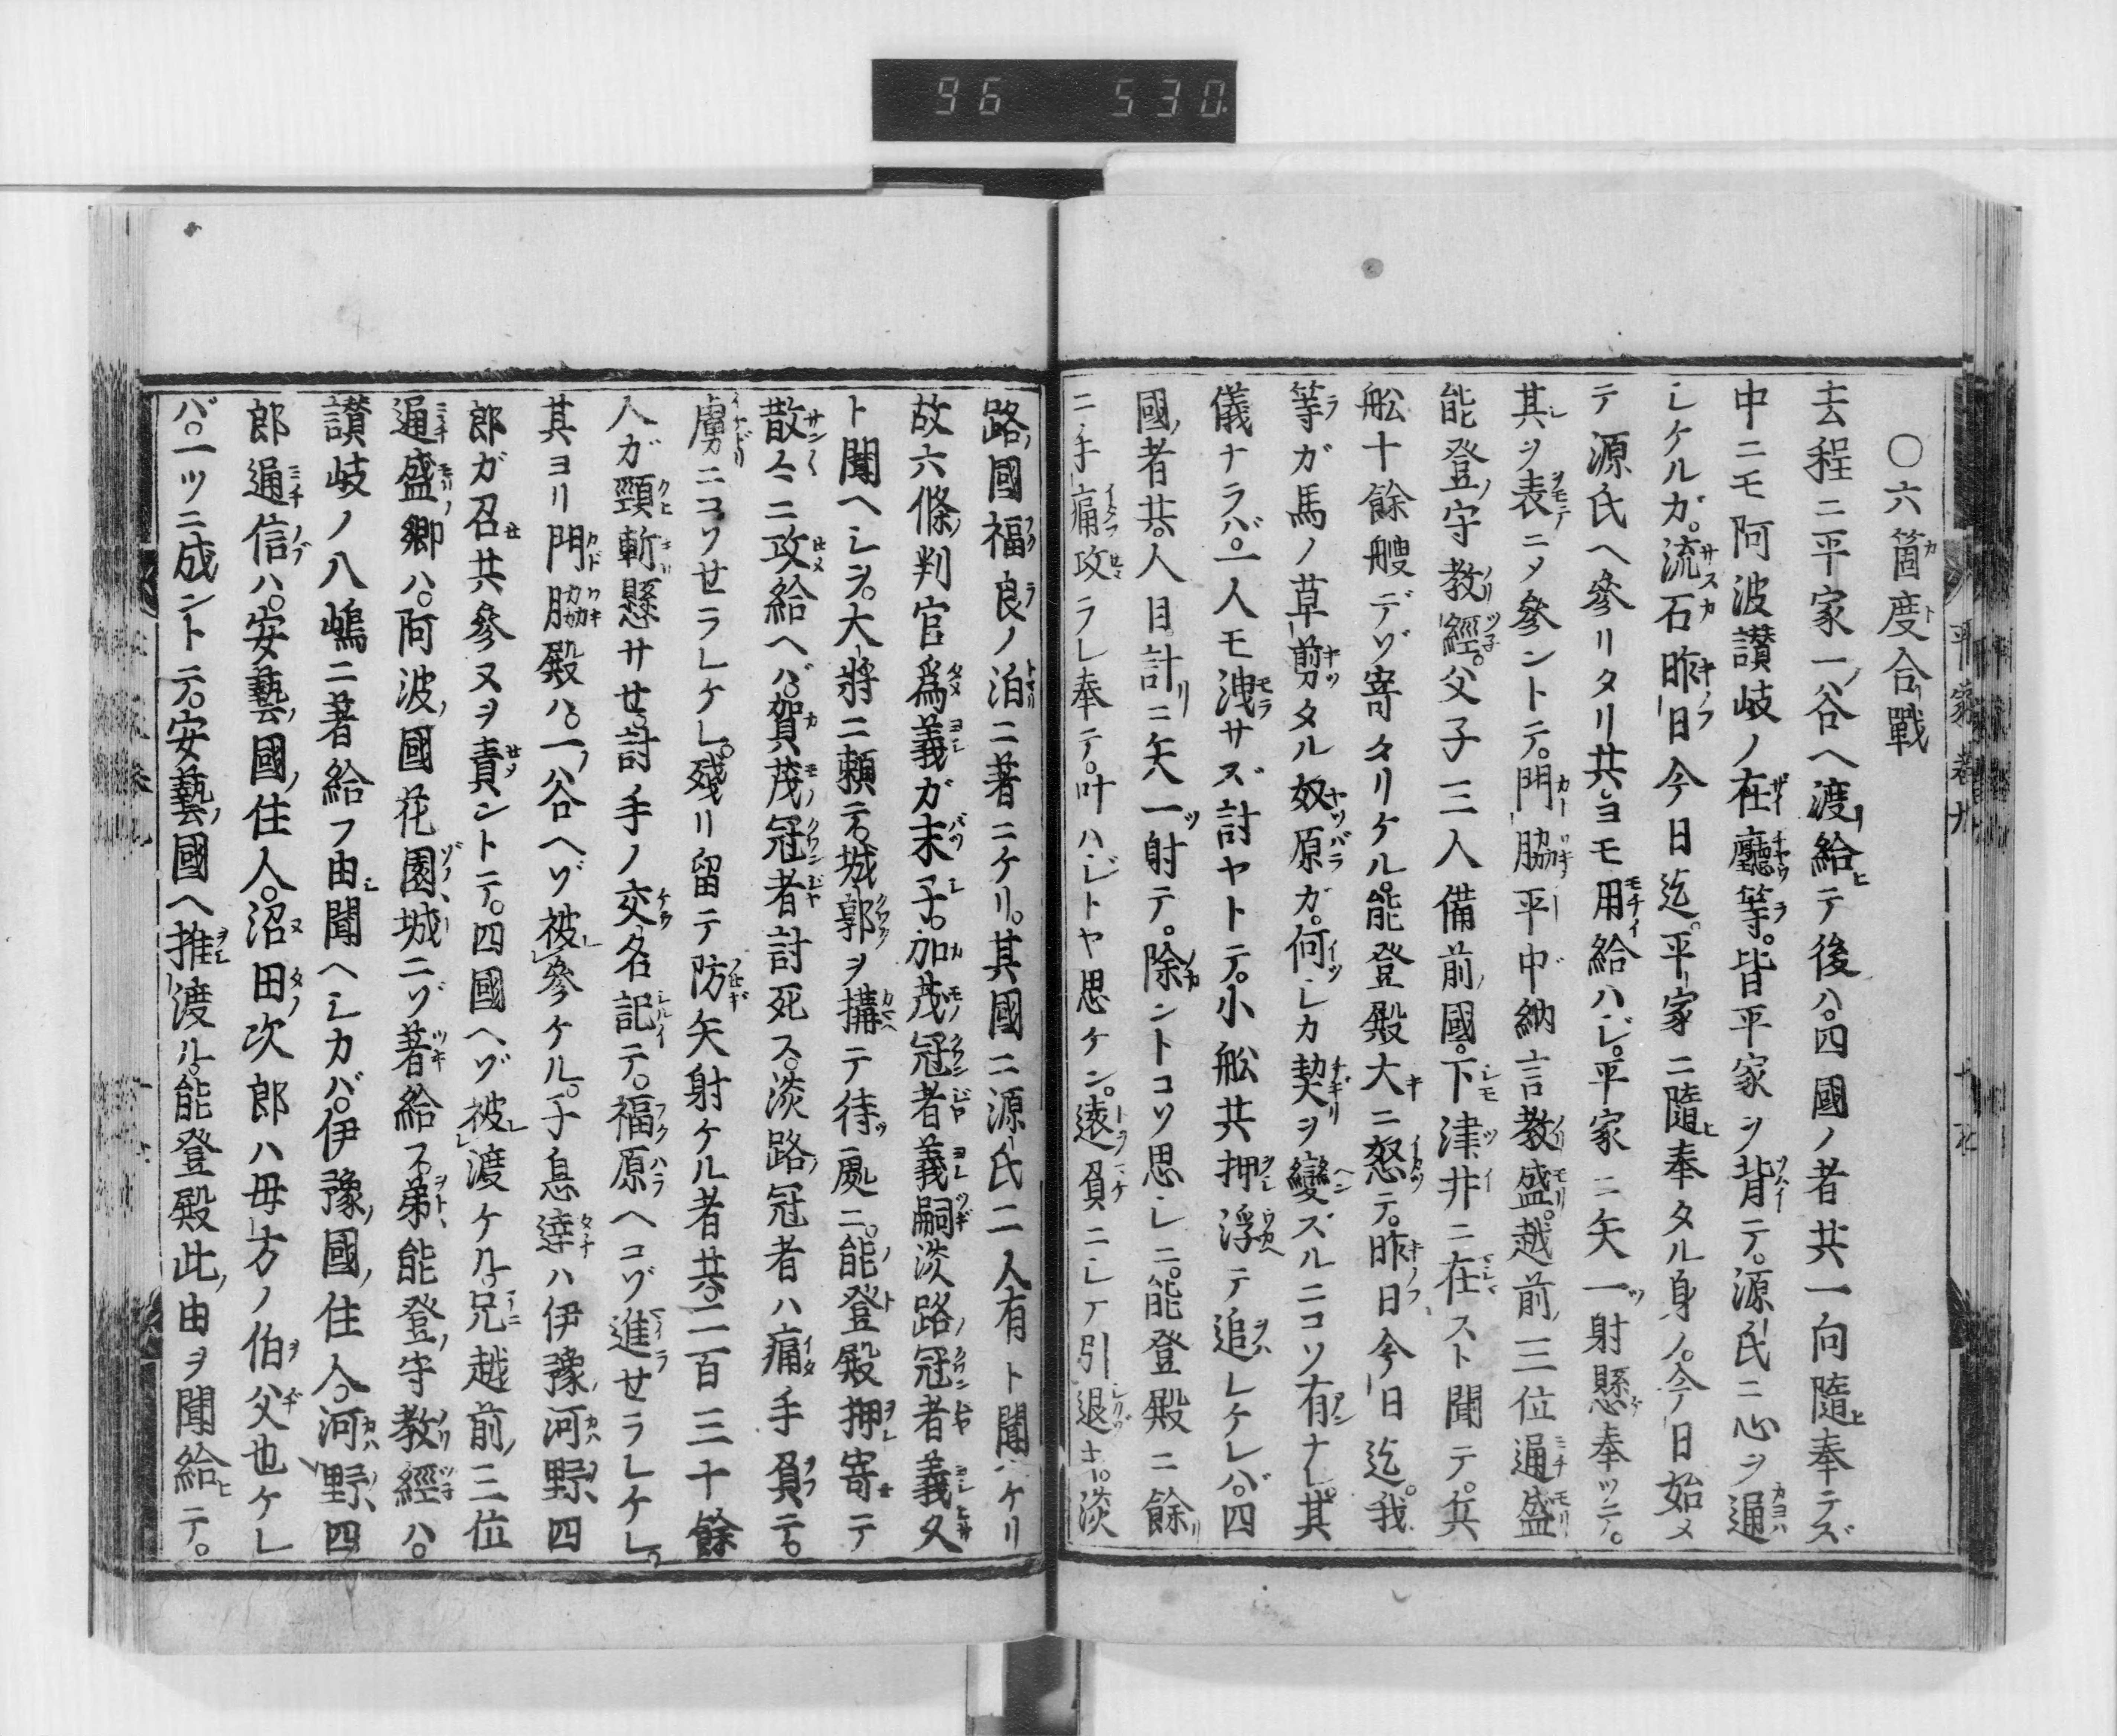 96 530.
○六箇度合戰
去程ニ平家一ノ谷ヘ渡給ヒテ後ハ。四國ノ者共一向隨ヒ奉テズ
中ニモ阿波讃岐ノ在廳等。皆平家ヲ背テ。源氏ニ心ヲ通
シケルガ。流石昨日今日迄。平家ニ隨ヒ奉タル身ノ。今日始メ
テ源氏ヘ參リタリ共。ヨモ用給ハジ。平家ニ矢一ツ射懸奉ツテ。
其ヲ表ニメ參ントテ。門脇平中納言教盛。越前三位通盛
能登ノ守教經。父子三人備前ノ國。下津井ニ在スト聞テ。兵
舩十餘艘デゾ寄タリケル。能登殿大キニ怒テ。昨日今日迄。我
等ガ馬ノ草剪タル奴原ガ。何シカ契ヲ變ズルニコソ有ナレ。其
儀ナラバ。一人モ洩サズ討ヤトテ。小舩共押浮テ追レケレバ。四
國ノ者共。人目計リニ矢一ツ射テ。除ントコソ思シニ。能登殿ニ餘リ
ニ手痛攻ラレ奉テ。叶ハジトヤ思ケン。遠負ニシテ引退キ。淡
路ノ國福良ノ泊ニ著ニケリ。其國ニ源氏二人有ト聞ヘケリ
故六條ノ判官爲義ガ末子。加茂冠者義嗣淡路ノ冠者義久
ト聞ヘシヲ。大將ニ頼テ。城郭ヲ搆テ待ツ處ニ。能登殿押寄テ
散々ニ攻給ヘバ。賀茂ノ冠者討死ス。淡路ノ冠者ハ痛手負テ。
虜ニコソせラレケレ。殘リ留テ防矢射ケル者共。二百三十餘
人ガ頸斬懸サせ。討手ノ交名記テ。福原ヘコソ進せラレケレ。
其ヨリ門脇殿ハ。一ノ谷ヘゾ被レ參ケル。子息達ハ伊豫ノ河野ノ四
郎ガ召共參ヌヲ責ントテ。四國ヘゾ被レ渡ケル。兄越前ノ三位
通盛ノ卿ハ。阿波ノ國花園ノ城ニゾ著給フ。弟能登ノ守教經ハ。
讃岐ノ八嶋ニ著給フ由聞ヘシカバ。伊豫ノ國ノ住人。河野ノ四
郎通信ハ。安藝ノ國ノ住人。沼田ノ次郎ハ母方ノ伯父也ケレ
バ。一ツニ成ントテ。安藝ノ國ヘ推渡ル。能登殿此ノ由ヲ聞給ヒテ。